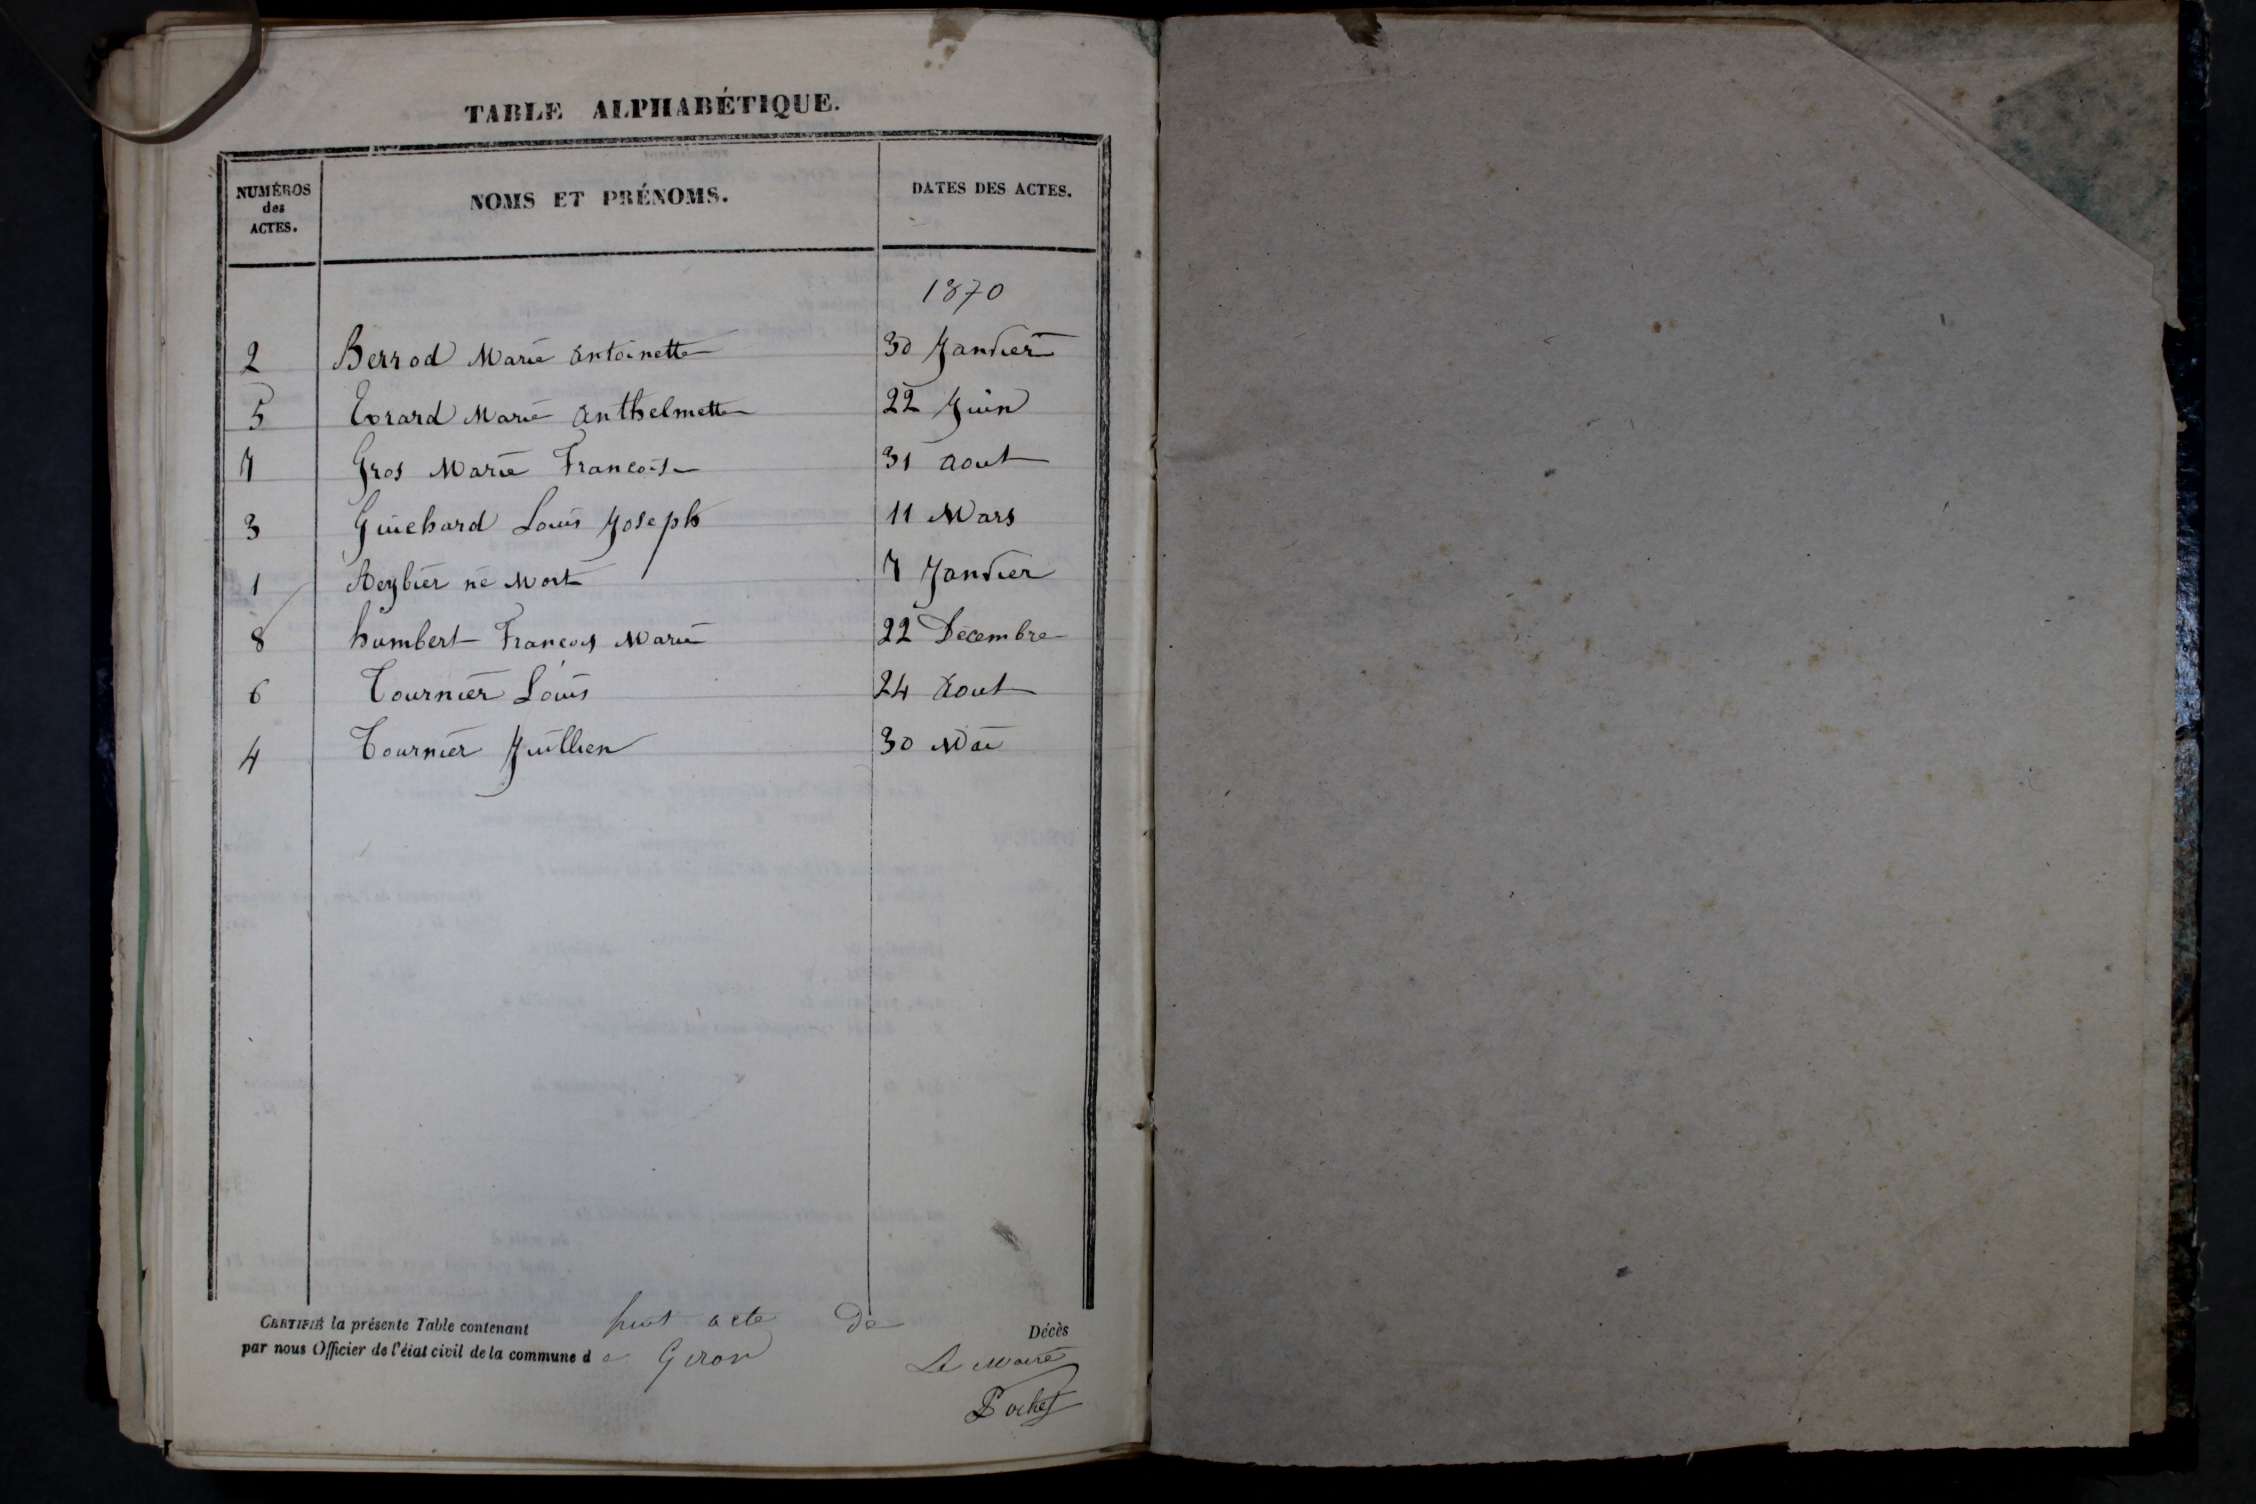 TABLE ALPHABÉTIQUE.
NUMÉROS des ACTES. NOMS ET PRÉNOMS. DATES DES ACTES.
1870
2 Berrod Marie antoinette 30 Janvier
5 Evrard Marie anthelmette 22 Juin
7 Gros Marie Francoise 31 aout
3 Guichard Louis Joseph 11 Mars
1 né Mort 7 Janvier
8 humbert Francois Marie 22 Décembre
6 Tournier Louis 24 aout
4 Tournier Juillien 30 Mai
CERTIFIÉ la présente Table contenant huit acte De Décès
par nous Officier de l'état civil de la commune d e Giron
Le Maire
Pochet